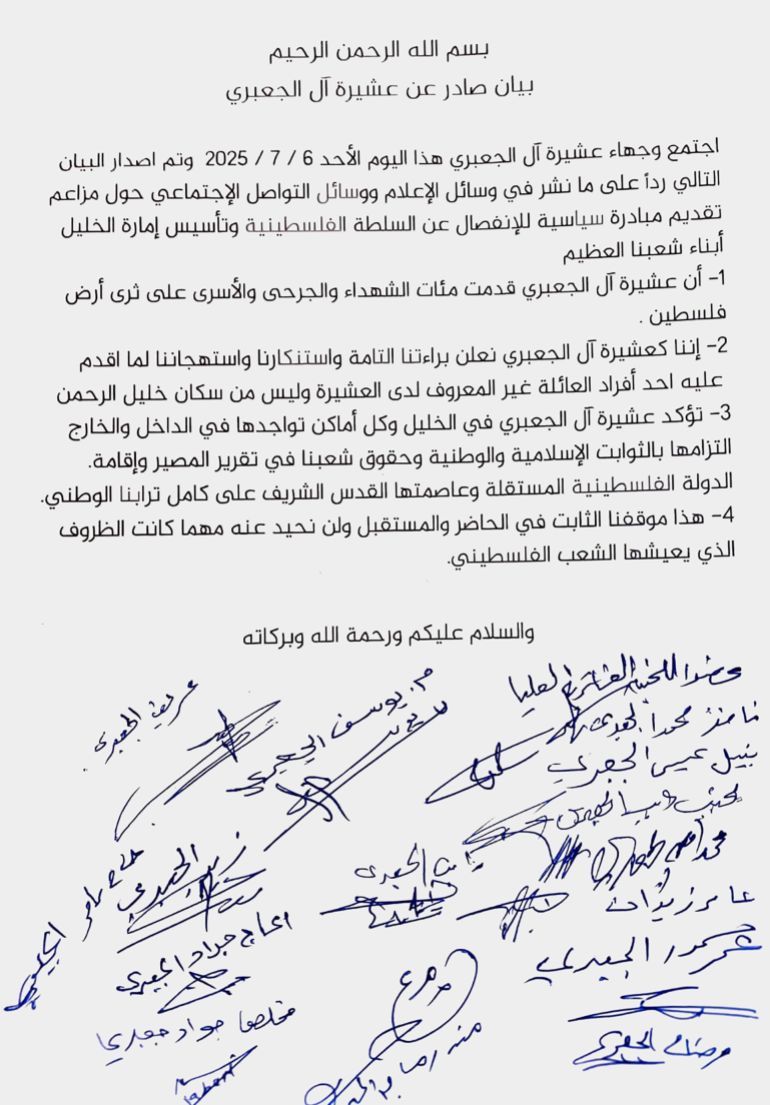 بسم الله الرحمن الرحيم
بيان صادر عن عشيرة آل الجعبري
اجتمع وجهاء عشيرة آل الجعبري هذا اليوم الأحد 6 / 7 / 2025 وتم اصدار البيان
التالي رداً على ما نشر في وسائل الإعلام ووسائل التواصل الإجتماعي حول مزاعم
تقديم مبادرة سياسية للإنفصال عن السلطة الفلسطينية وتأسيس إمارة الخليل
أبناء شعبنا العظيم
1- أن عشيرة آل الجعبري قدمت مئات الشهداء والجرحى والأسرى على ثرى أرض
فلسطين .
2- إننا كعشيرة آل الجعبري نعلن براءتنا التامة واستنكارنا واستهجاننا لما اقدم
عليه احد أفراد العائلة غير المعروف لدى العشيرة وليس من سكان خليل الرحمن
3- تؤكد عشيرة آل الجعبري في الخليل وكل أماكن تواجدها في الداخل والخارج
التزامها بالثوابت الإسلامية والوطنية وحقوق شعبنا في تقرير المصير وإقامة.
الدولة الفلسطينية المستقلة وعاصمتها القدس الشريف على كامل ترابنا الوطني.
4- هذا موقفنا الثابت في الحاضر والمستقبل ولن نحيد عنه مهما كانت الظروف
الذي يعيشها الشعب الفلسطيني.
والسلام عليكم ورحمة الله وبركاته
العليا
م. يوسف الجعبري
الجعبري
نبيل الجعبري
الجعبري
عامر زيدان
الحاج جواد الجعبري
الجعبري
جواد جعبري